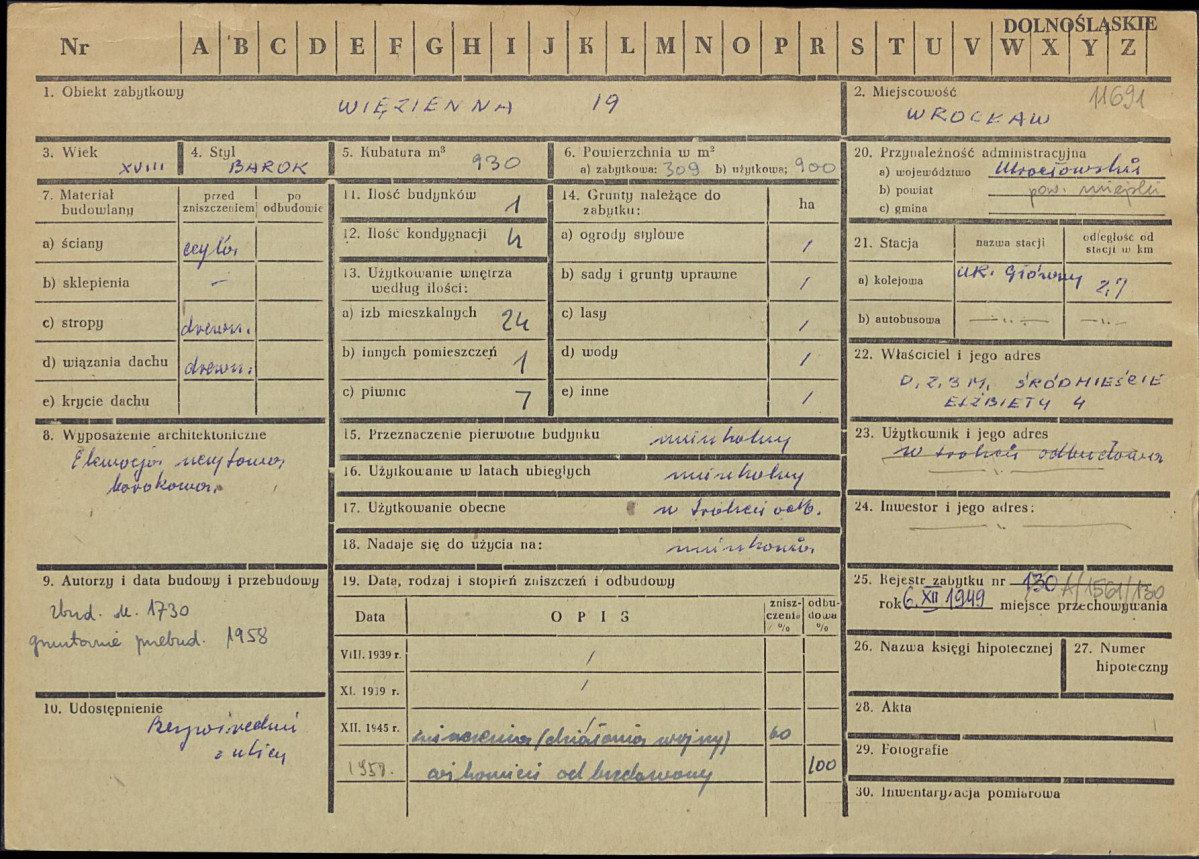 DOLNOŚLĄSKIE
Nr A B C D E F G H I J K L M N O P R S T U V W X Y Z
1. Obiekt zabytkowy
WIĘZIENNA 19
2. Miejscowość 11691
WROCŁAW
3. Wiek
XVIII
4. Styl
BAROK
5. Kubatura m³
930
6. Powierzchnia w m²
a) zabytkowa: 309 b) użytkowa: 900
7. Materiał budowlany
przed zniszczeniem
po odbudowie
a) ściany cegła
b) sklepienia –
c) stropy drewn.
d) wiązania dachu drewn.
e) krycie dachu
8. Wyposażenie architektoniczne
Elewacja
barokowa.
9. Autorzy i data budowy i przebudowy
Zbud. ok. 1730
gruntownie przebud. 1958
10. Udostępnienie
Bezpośredni
z ulicy
11. Ilość budynków 1
12. Ilość kondygnacji 4
13. Użytkowanie wnętrza
według ilości:
a) izb mieszkalnych 24
b) innych pomieszczeń 1
c) piwnic 7
14. Grunty należące do
zabytku:
ha
a) ogrody stylowe /
b) sady i grunty uprawne /
c) lasy /
d) wody /
e) inne /
15. Przeznaczenie pierwotne budynku mieszkalny
16. Użytkowanie w latach ubiegłych mieszkalny
17. Użytkowanie obecne w trakcie odb.
18. Nadaje się do użycia na: mieszkania
19. Data, rodzaj i stopień zniszczeń i odbudowy
Data
O P I S
znisz-
czenia
%
odbu-
dowa
%
VIII. 1939 r. /
XI. 1939 r. /
XII. 1945 r. zniszczenia (działania wojny) 60
1959. odbudowany 100
20. Przynależność administracyjna
a) województwo Wrocławskie
b) powiat pow. miejski
c) gmina
21. Stacja
nazwa stacji
odległość od
stacji w km
a) kolejowa Wr. Główny 2,7
b) autobusowa
22. Właściciel i jego adres
D.Z.B.M. ŚRÓDMIEŚCIE
ELŻBIETY 4
23. Użytkownik i jego adres
w trakcie odbudowa
24. Inwestor i jego adres:
25. Rejestr zabytku nr 130 A/1561/130
rok 6.XII 1949 miejsce przechowywania
26. Nazwa księgi hipotecznej
27. Numer
hipoteczny
28. Akta
29. Fotografie
30. Inwentaryzacja pomiarowa